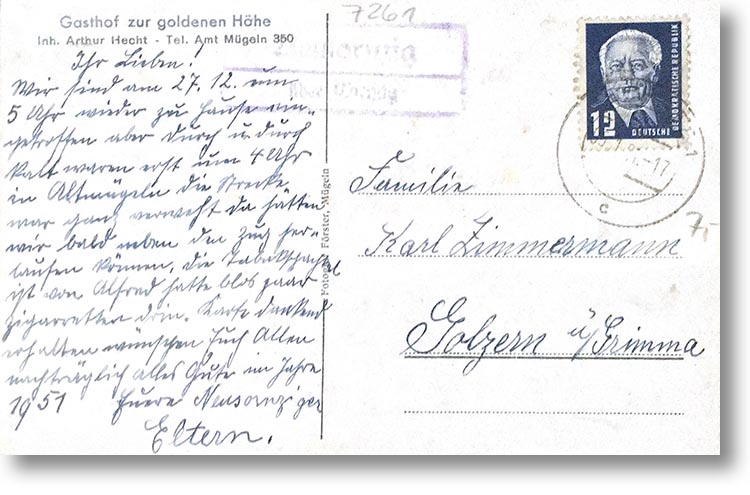 Gasthof zur goldenen Höhe
Inh. Arthur Hecht - Tel. Amt Mügeln 350
7261
Ihr Lieben!
Wir sind am 27.12. um
5 Uhr wieder zu Hause ein-
getroffen aber durch u. durch
kalt waren erst um 4 Uhr
in Altmügeln die Strecke
war ganz verweht da hätten
wir bald neben den Zug her-
laufen können, die Tabakschachtel
ist von Alfred hatte blos paar
Zigarretten drin. Karte dankend
erhalten wünschen Euch Allen
nachträglich alles Gute im Jahre
1951 Euere Neusornziger
Eltern.
Fotogr. Förster, Mügeln
12
DEUTSCHE
DEMOKRATISCHE REPUBLIK
c
-17
7,-
Familie
Karl Zimmermann
Golzern ü/Grimma